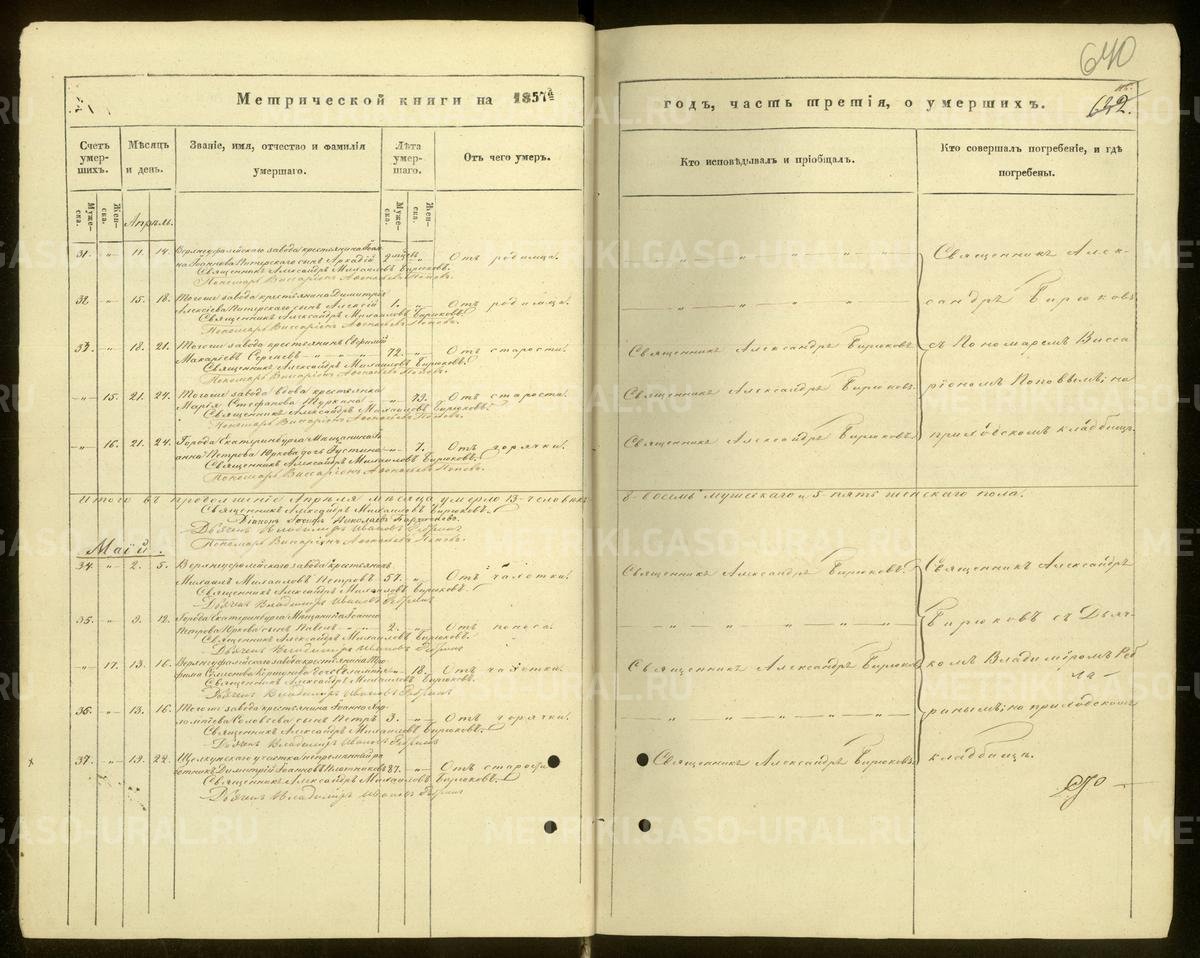 640
Метрической книги на 1857й
годъ, часть третія, о умершихъ.
632.
Счетъ умер-шихъ.
Мѣсяцъ и день.
Званіе, имя, отчество и фамилія умершаго.
Лѣта умер-шаго.
Отъ чего умеръ.
Кто исповѣдывалъ и пріобщалъ.
Кто совершалъ погребеніе, и гдѣ погребены.
Муже-ска.
Жен-ска.
Муже-ска.
Жен-ска.
Апрѣль.
31. „ 11. 14. Верхнеуфалейскаго завода крестьянина Іоанна сынъ Аркадій 2 мцевъ „ Отъ родимца.
Священникъ Александръ Михаиловъ Бирюковъ.
Пономарь Виссаріонъ Аѳонасьевъ Поповъ.
32. „ 15. 18. Тогоже завода крестьянина Димитрія
Алексіева сынъ Алексій 1. „ Отъ родимца.
Священникъ Александръ Михаиловъ Бирюковъ.
Пономарь Виссаріонъ Аѳонасьевъ Поповъ.
33. „ 18. 21. Тогоже завода крестьянинъ Евфимій
Макаріевъ Сергѣевъ 72. „ Отъ старости.
Священникъ Александръ Михаиловъ Бирюковъ.
Пономарь Виссаріонъ Аѳонасьевъ Поповъ.
„ 15. 21. 24. Тогоже завода вдова крестьянка
Марія Стефанова „ 73. Отъ старости.
Священникъ Александръ Михаиловъ Бирюковъ.
Пономарь Виссаріонъ Аѳонасьевъ Поповъ.
„ 16. 21. 24. Города Екатеринбурга Мѣщанина Іо
анна Петрова Юркова дочь Іустина „ 7. Отъ горячки.
Священникъ Александръ Михаиловъ Бирюковъ.
Пономарь Виссаріонъ Аѳонасьевъ Поповъ.
Священникъ Александръ Бирюковъ.
Священникъ Александръ Бирюковъ.
Священникъ Александръ Бирюковъ.
Священникъ Алек-
сандръ Бирюковъ
съ Пономаремъ Висса
ріономъ Поповымъ; на
приходскомъ кладбищѣ.
Итого въ продолженіе Апрѣля мѣсяца умерло 13 человѣкъ
8 восемь мужескаго и 5 пять женскаго пола.
Священникъ Александръ Михаиловъ Бирюковъ.
Діаконъ Іосифъ Николаевъ
Дьячекъ Владиміръ Ивановъ
Пономарь Виссаріонъ Аѳонасьевъ Поповъ.
Маій.
34. „ 2. 5. Верхнеуфалейскаго завода крестьянинъ
Михаилъ Михаиловъ Петровъ 57. „ Отъ чахотки.
Священникъ Александръ Михаиловъ Бирюковъ.
Дьячекъ Владиміръ Ивановъ
35. „ 9. 12. Города Екатеринбурга Мѣщанина Іоанна
Петрова Юркова сынъ Павелъ 2. „ Отъ поноса.
Священникъ Александръ Михаиловъ Бирюковъ.
Дьячекъ Владиміръ Ивановъ
„ 17. 13. 16. Верхнеуфалейскаго завода крестьянина Тро
фима Семенова Коршунова дочь „ 18. Отъ чахотки.
Священникъ Александръ Михаиловъ Бирюковъ.
Дьячекъ Владиміръ Ивановъ
36. „ 13. 16. Тогожъ завода крестьянина Іоанна Хар
лампіева Соловьева сынъ Петръ 3. „ Отъ горячки.
Священникъ Александръ Михаиловъ Бирюковъ.
Дьячекъ Владиміръ Ивановъ
37. „ 19. 22. Щелкунскаго участка непремѣнный ра
ботникъ Димитрій Іоанновъ Плотниковъ 87. „ Отъ старости.
Священникъ Александръ Михаиловъ Бирюковъ.
Дьячекъ Владиміръ Ивановъ
Священникъ Александръ Бирюковъ.
Священникъ Александръ Бирюковъ
Священникъ Александръ Бирюковъ.
Священникъ Александръ
Бирюковъ съ Дьяч-
комъ Владиміромъ
на приходскомъ
кладбищѣ.
METRIKI.GASO-URAL.RU